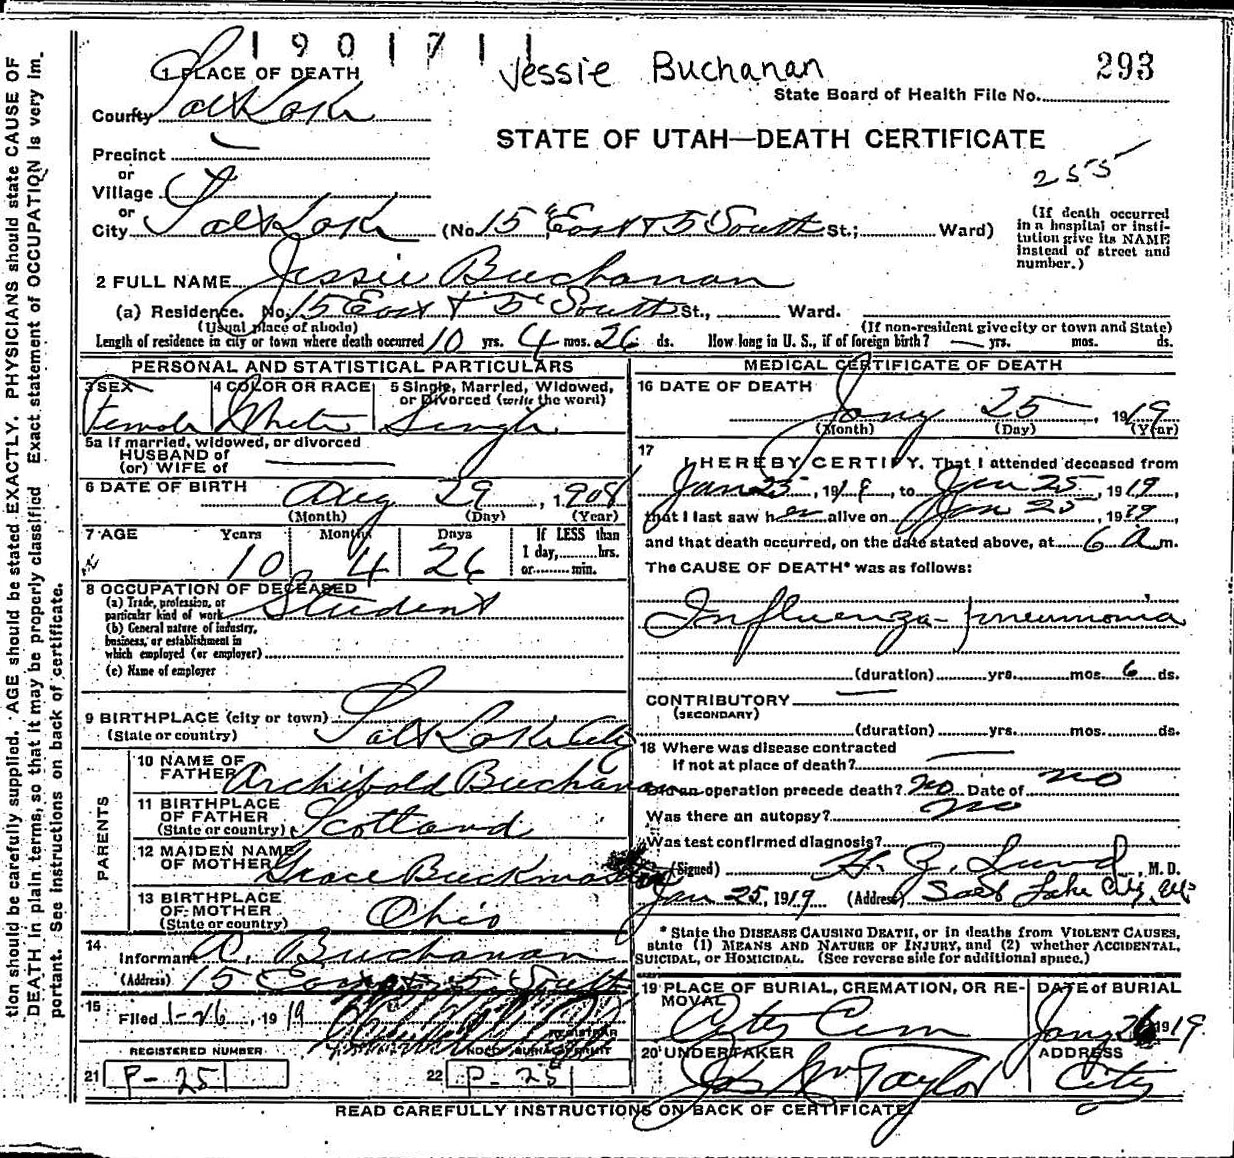 1901711
Jessie Buchanan
293
1 PLACE OF DEATH
State Board of Health File No.
County Salt Lake
STATE OF UTAH—DEATH CERTIFICATE
Precinct
255
or
Village
or
City Salt Lake (No. 15 East & 5 South St.; Ward)
(If death occurred in a hospital or institution give its NAME instead of street and number.)
2 FULL NAME Jessie Buchanan
(a) Residence. No. 15 East & 5 South St., Ward.
(Usual place of abode) (If non-resident give city or town and State)
Length of residence in city or town where death occurred 10 yrs. 4 mos. 26 ds. How long in U. S., if of foreign birth? — yrs. mos. ds.
PERSONAL AND STATISTICAL PARTICULARS
3 SEX 4 COLOR OR RACE 5 Single, Married, Widowed, or Divorced (write the word)
Female White Single
5a If married, widowed, or divorced
HUSBAND of
(or) WIFE of
6 DATE OF BIRTH Aug 29, 1908
(Month) (Day) (Year)
7 AGE Years Months Days If LESS than
1 day, hrs.
10 4 26 or min.
8 OCCUPATION OF DECEASED
(a) Trade, profession, or
particular kind of work Student
(b) General nature of industry,
business, or establishment in
which employed (or employer)
(c) Name of employer
9 BIRTHPLACE (city or town) Salt Lake City
(State or country)
PARENTS
10 NAME OF
FATHER Archibold Buchanan
11 BIRTHPLACE
OF FATHER
(State or country) Scotland
12 MAIDEN NAME
OF MOTHER Grace
13 BIRTHPLACE
OF MOTHER
(State or country) Ohio
14
Informant A. Buchanan
(Address) 15 South
15
Filed 1-26, 1919
REGISTRAR
REGISTERED NUMBER
21 P-251 22 P-251
MEDICAL CERTIFICATE OF DEATH
16 DATE OF DEATH
Jany 25, 1919
(Month) (Day) (Year)
17
I HEREBY CERTIFY, That I attended deceased from
Jan 25, 1919, to Jan 25, 1919,
that I last saw her alive on Jan 25, 1919,
and that death occurred, on the date stated above, at 6 a m.
The CAUSE OF DEATH* was as follows:
Influenza-pneumonia
(duration) yrs. mos. 6 ds.
CONTRIBUTORY
(SECONDARY)
(duration) yrs. mos. ds.
18 Where was disease contracted
If not at place of death?
Did an operation precede death? no Date of no
Was there an autopsy? no
Was test confirmed diagnosis?
(Signed) H. Z. Lund, M. D.
Jan 25, 1919 (Address) Salt Lake City, Ut
* State the DISEASE CAUSING DEATH, or in deaths from VIOLENT CAUSES,
state (1) MEANS AND NATURE OF INJURY, and (2) whether ACCIDENTAL,
SUICIDAL, or HOMICIDAL. (See reverse side for additional space.)
19 PLACE OF BURIAL, CREMATION, OR REMOVAL DATE of BURIAL
City Cem Jany 26 1919
20 UNDERTAKER ADDRESS
Jos Wm Taylor City
READ CAREFULLY INSTRUCTIONS ON BACK OF CERTIFICATE.
tion should be carefully supplied. AGE should be stated EXACTLY. PHYSICIANS should state CAUSE OF
DEATH in plain terms, so that it may be properly classified Exact statement of OCCUPATION is very im.
portant. See instructions on back of certificate.